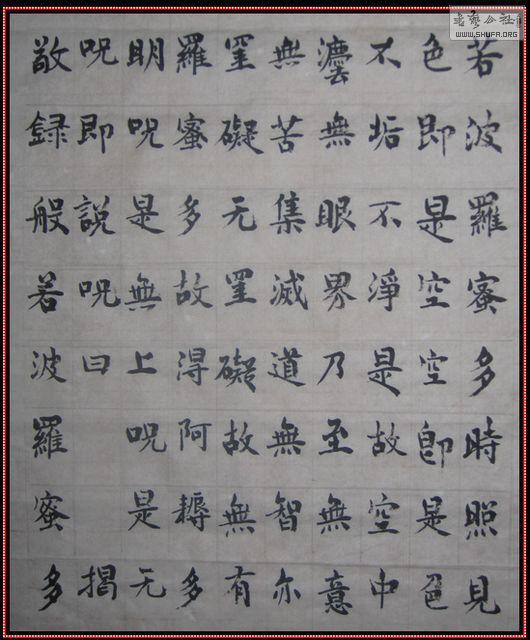 書藝公社
WWW.SHUFA.ORG
若波羅蜜多時照見
色即是空空即是色
不垢不淨是故空中
瀀無眼界乃至無意
無苦集滅道無智亦
罣礙无罣礙故無有
羅蜜多故淂阿耨多
明咒是無上咒是无
咒即說咒曰揭
敬録般若波羅蜜多